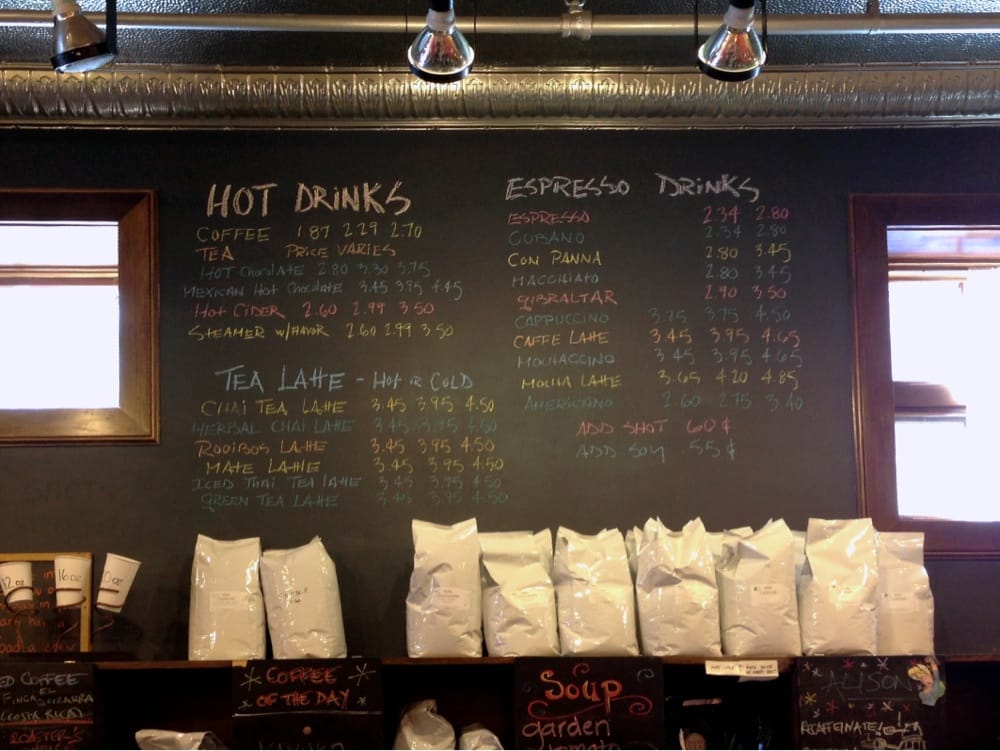 HOT DRINKS
COFFEE 1.87 2.29 2.70
TEA PRICE VARIES
HOT CHOCOLATE 2.80 3.30 3.75
MEXICAN HOT CHOCOLATE 3.45 3.95 4.45
HOT CIDER 2.60 2.99 3.50
STEAMER W/FLAVOR 2.60 2.99 3.50
TEA LATTE - HOT OR COLD
CHAI TEA LATTE 3.45 3.95 4.50
HERBAL CHAI LATTE 3.45 3.95 4.50
ROOIBOS LATTE 3.45 3.95 4.50
MATE LATTE 3.45 3.95 4.50
ICED THAI TEA LATTE 3.45 3.95 4.50
GREEN TEA LATTE 3.45 3.95 4.50
ESPRESSO DRINKS
ESPRESSO 2.34 2.80
CUBANO 2.34 2.80
CON PANNA 2.80 3.45
MACCHIATO 2.80 3.45
GIBRALTAR 2.90 3.50
CAPPUCCINO 3.25 3.75 4.50
CAFFE LATTE 3.45 3.95 4.65
MOCHACCINO 3.45 3.95 4.65
MOCHA LATTE 3.65 4.20 4.85
AMERICANO 2.60 2.75 3.40
ADD SHOT 60¢
ADD SOY .55¢
12oz
16oz
0oz
ED COFFEE
EL
FINCA QUIZARRA
(COSTA RICA)
ROASTER'S
COFFEE
OF THE DAY
Soup
garden
tomato
ALISON